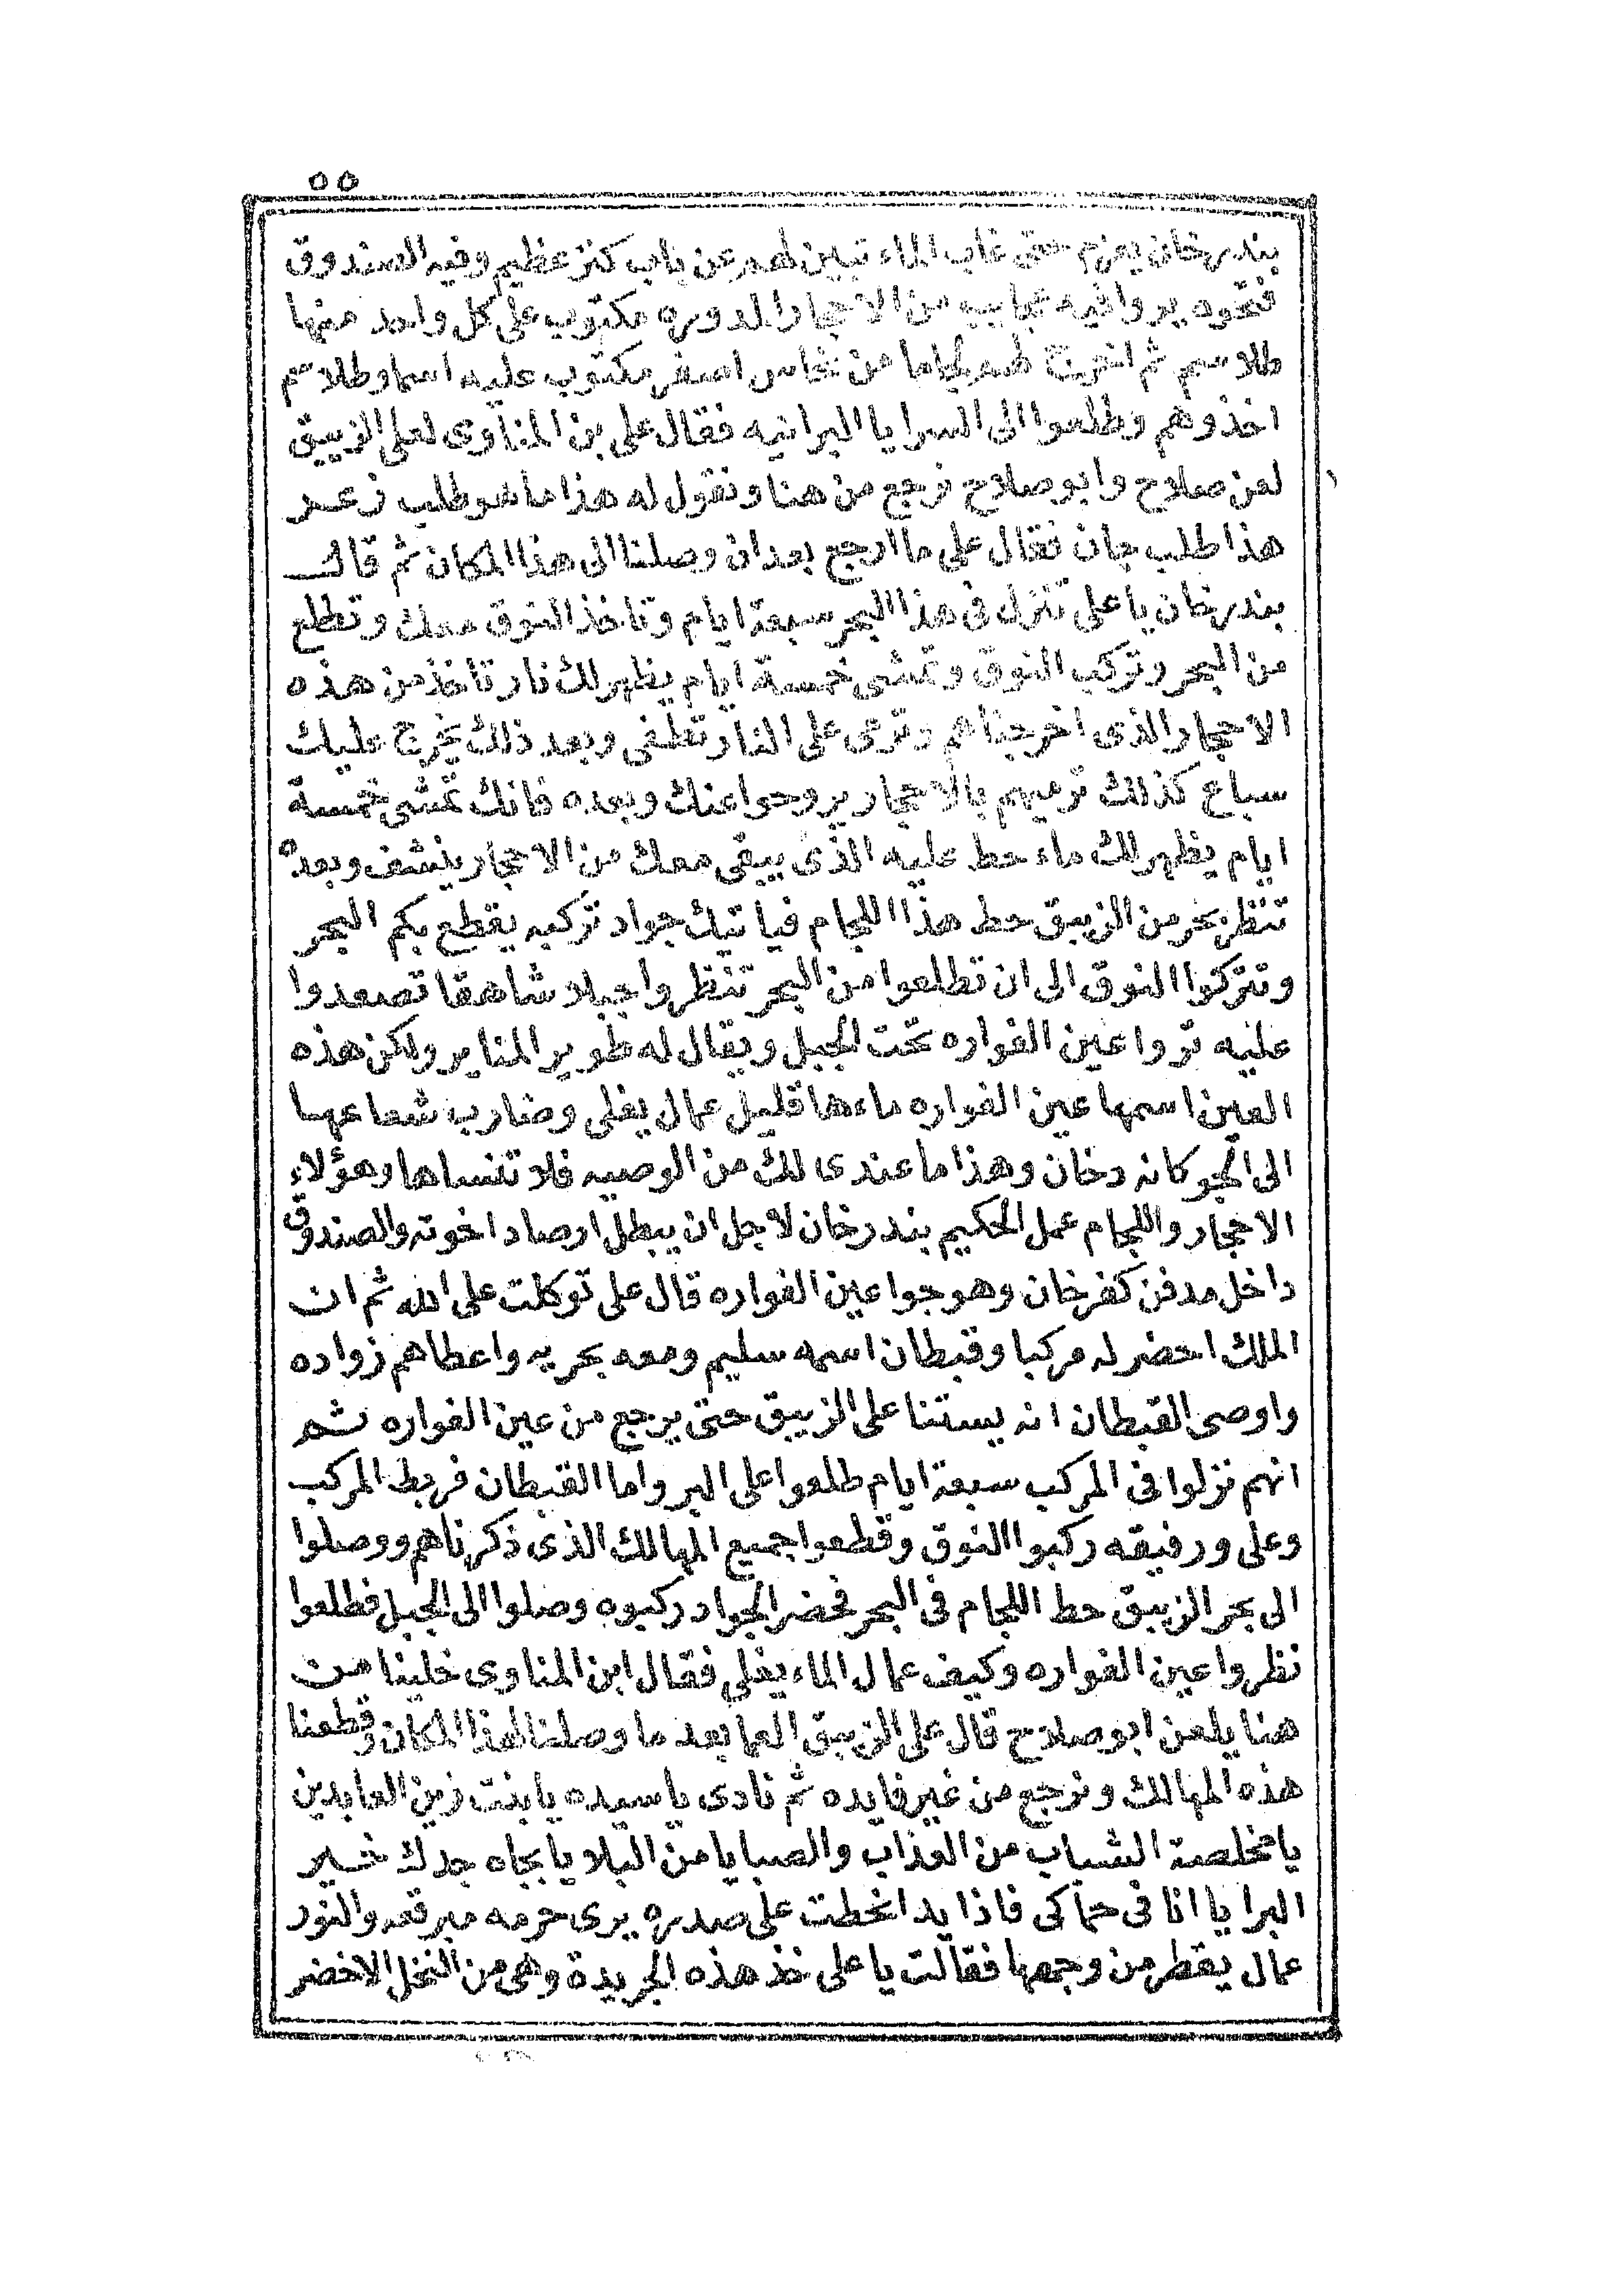 ٥٥
بندرخان يعزم حتى غاب الماء تبين لهم عن باب كنز عظيم وفيه الصندوق
فتحوه يروا فيه عجايب من الاحجار المدوره مكتوب على كل واحد منها
طلاسم ثم اخرج لهم لجاما من نحاس اصفر مكتوب عليه اسما وطلاسم
اخذوهم وطلعوا الى السرايا البرانيه فقال على بن المناوى لعلى الزيبق
لعن صلاح وابو صلاح نرجع من هنا ونقول له هذا ما هو طلب زعر
هذا طلب جان فقال على ما ارجع بعد ان وصلنا الى هذا المكان ثم قال
بندرخان يا على تنزل فى هذا البحر سبعة ايام وتاخذ النوق معك وتطلع
من البحر وتركب النوق وتمشى خمسة ايام يظهر لك نار تاخذ من هذه
الاحجار الذى اخرجناهم وترمى على النار تطفى وبعد ذلك يخرج عليك
سباع كذلك ترميهم بالاحجار يروحوا عنك وبعده فانك تمشى خمسة
ايام يظهر لك ماء حط عليه الذى يبقى معك من الاحجار ينشف وبعده
تنظر بحر من الزيبق حط هذا اللجام فياتيك جواد تركبه يقطع بكم البحر
وتتركوا النوق الى ان تطلعوا من البحر تنظروا جبلا شاهقا تصعدوا
عليه تروا عين الفواره تحت الجبل ويقال له طوير المناير ولكن هذه
العين اسمها عين الفواره ماءها قليل عمال يغلى وضارب شعاعها
الى الجو كانه دخان وهذا ما عندى لك من الوصيه فلا تنساها وهؤلاء
الاحجار واللجام عمل الحكيم بندرخان لاجل ان يبطل ارصاد اخوته والصندوق
داخل مدفن كفرخان وهو جوا عين الفواره قال على توكلت على الله ثم ان
الملك احضر له مركبا وقبطان اسمه سليم ومعه بحريه واعطاهم زواده
واوصى القبطان انه يستنا على الزيبق حتى يرجع من عين الفواره ثم
انهم نزلوا فى المركب سبعة ايام طلعوا على البر واما القبطان فربط المركب
وعلى ورفيقه ركبوا النوق وقطعوا جميع المهالك الذى ذكرناهم ووصلوا
الى بحر الزيبق حط اللجام فى البحر فحضر الجواد ركبوه وصلوا الى الجبل فطلعوا
نظروا عين الفواره وكيف عمال الماء يغلى فقال ابن المناوى خلينا من
هنا يلعن ابو صلاح قال على الزيبق العما بعد ما وصلنا لهذا المكان وقطعنا
هذه المهالك ونرجع من غير فايده ثم نادى يا سيده يا بنت زين العابدين
يا مخلصة الشباب من العذاب والصبايا من البلايا بجاه جدك خير
البرايا انا فى حماكى فاذا يد انحطت على صدره يرى حرمه مبرقعه والنور
عمال يقطر من وجهها فقالت يا على خذ هذه الجريدة وهى من النخل الاخضر